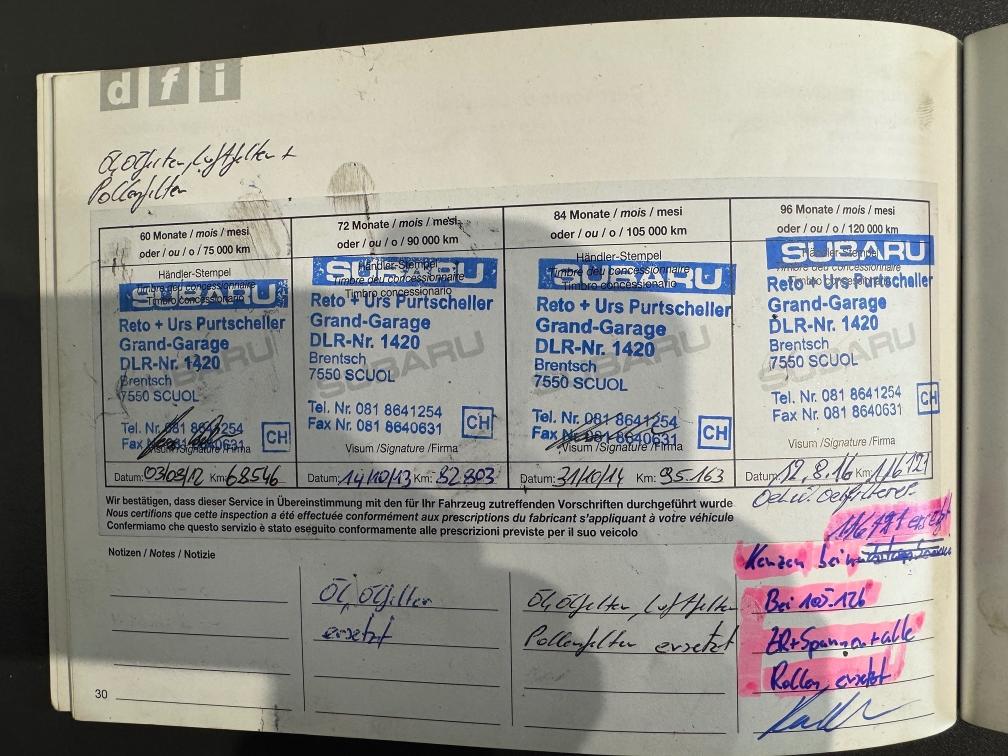 dfi
Öl, Ölfilter, Luftfilter +
Pollenfilter
60 Monate / mois / mesi
oder / ou / o / 75 000 km
Händler-Stempel
Timbre deu concessionnaire
Timbro concessionario
SUBARU
Reto + Urs Purtscheller
Grand-Garage
DLR-Nr. 1420
Brentsch
7550 SCUOL
SUBARU
Tel. Nr. 081 8641254
Fax Nr. 081 8640631
CH
Visum /Signature /Firma
Datum: 03/09/12 Km: 68546
72 Monate / mois / mesi
oder / ou / o / 90 000 km
Händler-Stempel
Timbre deu concessionnaire
Timbro concessionario
SUBARU
Reto + Urs Purtscheller
Grand-Garage
DLR-Nr. 1420
Brentsch
7550 SCUOL
SUBARU
Tel. Nr. 081 8641254
Fax Nr. 081 8640631
CH
Visum /Signature /Firma
Datum: 14/10/13 Km: 82.803
84 Monate / mois / mesi
oder / ou / o / 105 000 km
Händler-Stempel
Timbre deu concessionnaire
Timbro concessionario
SUBARU
Reto + Urs Purtscheller
Grand-Garage
DLR-Nr. 1420
Brentsch
7550 SCUOL
SUBARU
Tel. Nr. 081 8641254
Fax Nr. 081 8640631
CH
Visum /Signature /Firma
Datum: 31/10/14 Km: 95.163
96 Monate / mois / mesi
oder / ou / o / 120 000 km
Händler-Stempel
Timbre deu concessionnaire
Timbro concessionario
SUBARU
Reto + Urs Purtscheller
Grand-Garage
DLR-Nr. 1420
Brentsch
7550 SCUOL
SUBARU
Tel. Nr. 081 8641254
Fax Nr. 081 8640631
CH
Visum /Signature /Firma
Datum: 12.8.16 Km: 116121
Wir bestätigen, dass dieser Service in Übereinstimmung mit den für Ihr Fahrzeug zutreffenden Vorschriften durchgeführt wurde
Nous certifions que cette inspection a été effectuée conformément aux prescriptions du fabricant s'appliquant à votre véhicule
Confermiamo che questo servizio è stato eseguito conformamente alle prescrizioni previste per il suo veicolo
Notizen / Notes / Notizie
Öl, Ölfilter
ersetzt
Öl, Ölfilter, Luftfilter
Pollenfilter ersetzt
Kerzen bei
Bei 105.126
ZR + Spanner + alle
Rollen ersetzt
30